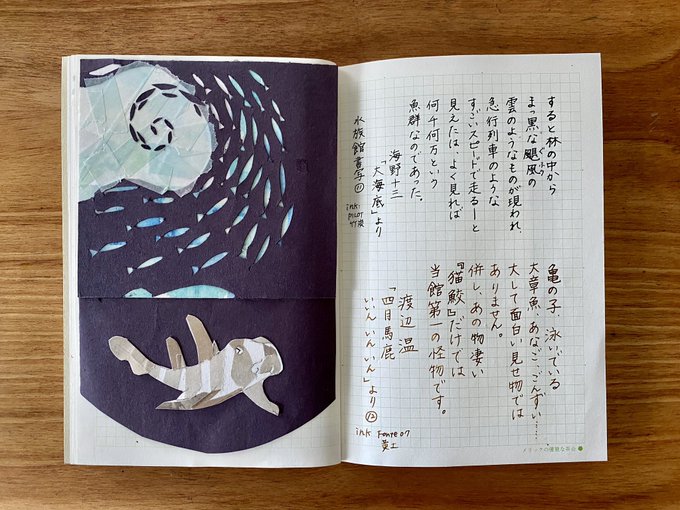 すると林の中から
まっ黒な颶風の
ぐふう
雲のようなものが現われ、
急行列車のような
すごいスピードで走る――と
見えたは、よく見れば
何千何万という
魚群なのであった。
海野十三
「大海底」より
水族館書写⑪
ink.
PILOT
竹炭
亀の子、泳いでいる
大章魚、あなご、ごんずい……、
大して面白い見せ物では
ありません。
併し、あの物凄い
『猫鮫』だけでは
当館第一の怪物です。
渡辺 温
「四月馬鹿
いん いん いん」より⑫
ink Fonte 07
黄土
メリックの優雅な茶会